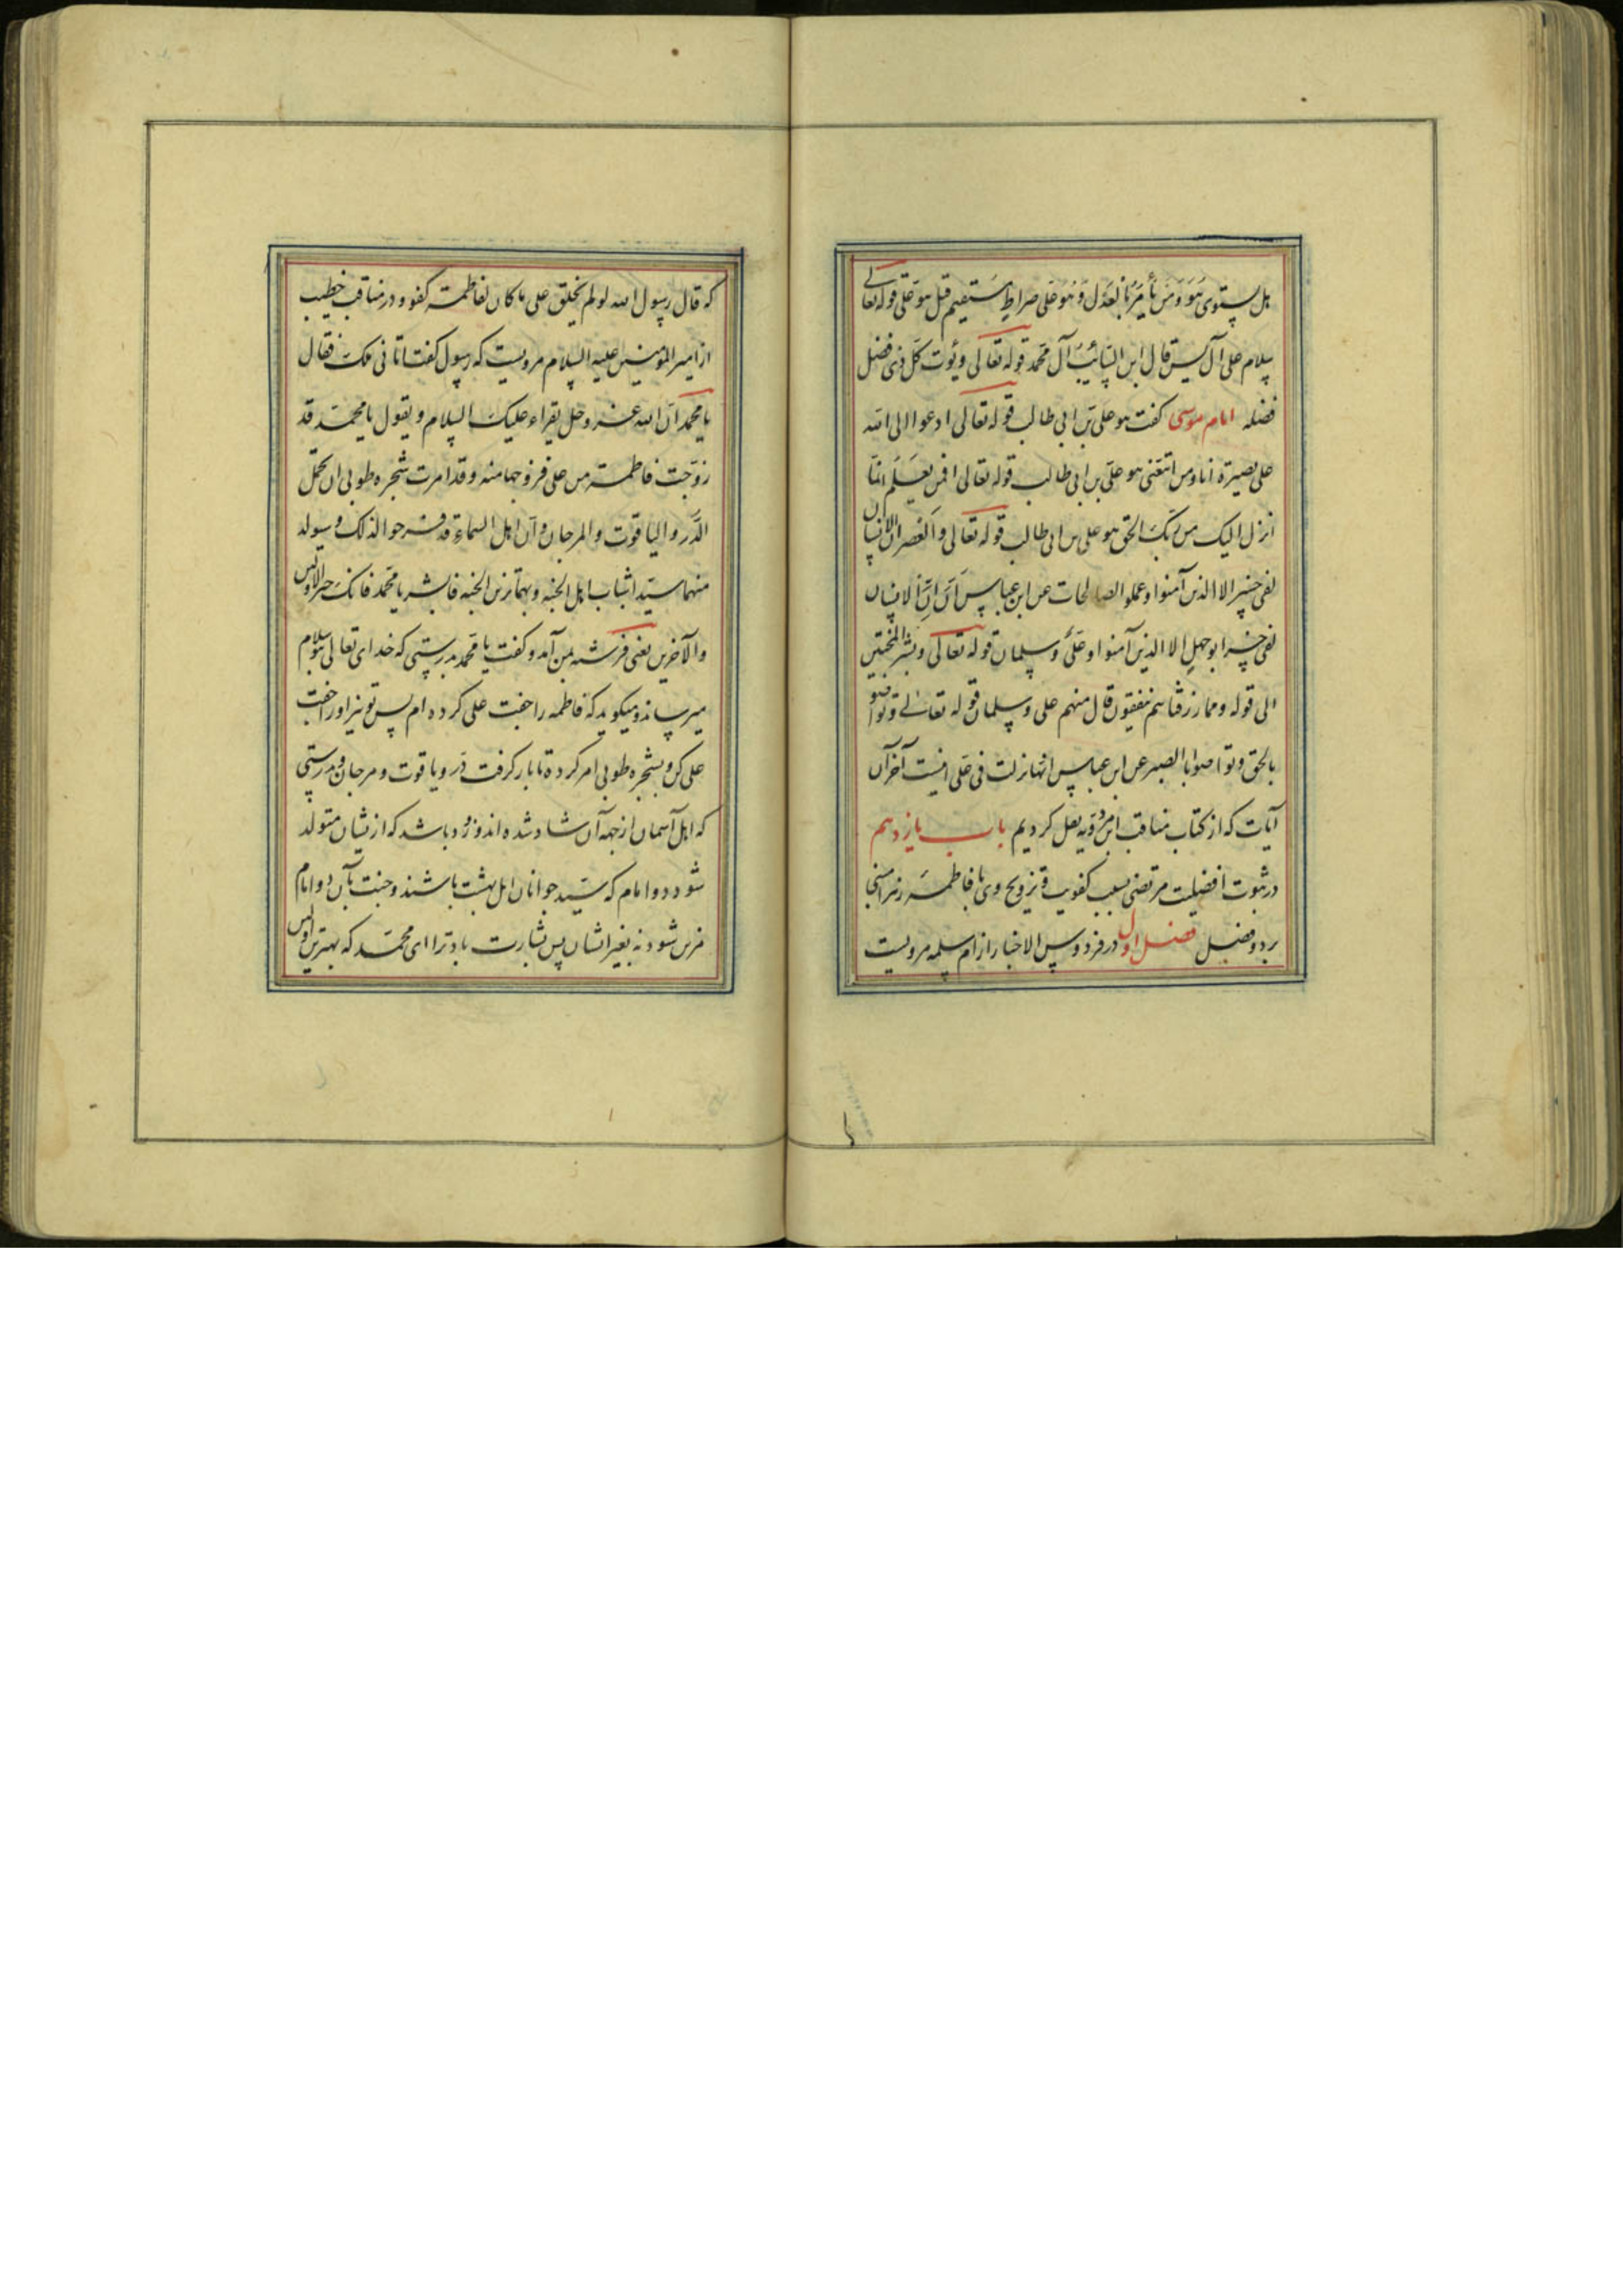 هل یستوی هو و من یأمر بالعدل و هو علی صراط مستقیم قیل هو علی قوله تعالی
سلام علی آل یس قال ابن السائب آل محمد قوله تعالی و یؤت کل ذی فضل
فضله امام موسی کفت هو علی بن ابی طالب قوله تعالی ادعوا الی الله
علی بصیرة انا و من اتبعنی هو علی بن ابی طالب قوله تعالی افمن یعلم انما
انزل الیک من ربک الحق هو علی بن ابی طالب قوله تعالی و العصر ان الانسان
لفی خسر الا الذین آمنوا و عملوا الصالحات عن ابن عباس ان الانسان
لفی خسر ابو جهل الا الذین آمنوا و علی و سلمان قوله تعالی و بشر المخبتین
الی قوله و مما رزقناهم ینفقون قال منهم علی و سلمان قوله تعالی و تواصوا
بالحق و تواصوا بالصبر عن ابن عباس انها نزلت فی علی اینست آخر آن
آیات که از کتاب مناقب ابن مردویه نقل کردیم باب یازدهم
در ثبوت افضلیت مرتضی بسبب کفویت و تزویج وی با فاطمه زهرا
بر دو فصل فصل اول در فردوس الاخبار از ام سلمه مرویست
که قال رسول الله لو لم یخلق علی ما کان لفاطمة کفو و در مناقب خطیب
از امیر المؤمنین علیه السلام مرویست که رسول کفت اتانی ملک فقال
یا محمد ان الله عز و جل یقراء علیک السلام و یقول یا محمد قد
زوجت فاطمة من علی فزوجها منه و قد امرت شجره طوبی ان تحمل
الدر و الیاقوت و المرجان و ان اهل السماء قد فرحوا لذلک و سیولد
منهما سیدا شباب اهل الجنه و بهما تزین الجنه فابشر یا محمد فانک خیر الاولین
و الآخرین یعنی فرشته بمن آمد و کفت یا محمد بدرستی که خدای تعالی بتو سلام
میرساند و میکوید که فاطمه را جفت علی کرده ام پس تو نیز او را جفت
علی کن و بشجره طوبی امر کرده تا بار کرفت در و یاقوت و مرجان و بدرستی
که اهل آسمان از جهه آن شاد شده اند و زود باشد که ازیشان متولد
شود دو امام که سید جوانان اهل بهشت باشند و جنت بآن دو امام
مزین شود نه بغیر ایشان پس بشارت باد ترا ای محمد که بهترین اولین